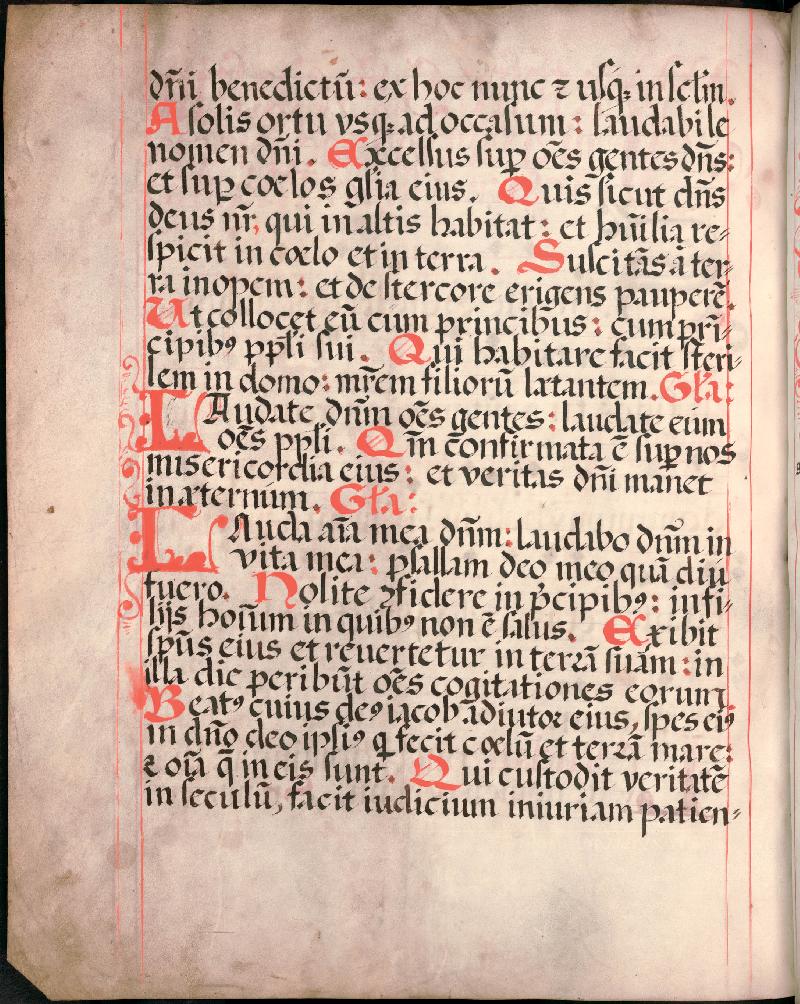 dñi benedictũ: ex hoc nunc ⁊ usqꝫ in sclm̃.
A solis ortu vsqꝫ ad occasum: laudabile
nomen dñi. Excelsus suꝑ oẽs gentes dñs:
et suꝑ cœlos gl̃ia eius. Quis sicut dñs
deus nr̃, qui in altis habitat: et hũilia re⸗
spicit in cœlo et in terra. Suscitãs a ter⸗
ra inopem: et de stercore erigens pauperẽ.
Ut collocet eũ cum principibus: cum pri⸗
cipibꝰ ppl̃i sui. Qui habitare facit steri⸗
lem in domo: mr̃em filiorũ lætantem. Gl̃a:
LAudate dñm oẽs gentes: laudate eum
oẽs ppl̃i. Qm̃ confirmata ẽ suꝑ nos
misericordia eius: et veritas dñi manet
in æternum. Gl̃a:
LAuda aĩa mea dñm: laudabo dñm in
vita mea: psallam deo meo quãdiu
fuero. Nolite ꝯfidere in p̃cipibꝰ: in fi⸗
lijs hoĩum in quibꝰ non ẽ salus. Exibit
sp̃us eius et reuertetur in terrã suam: in
illa die peribũt oẽs cogitationes eorum
Beatꝰ cuius deꝰ iacob adiutor eius, spes eiꝰ
in dño deo ipsiꝰ q̃ fecit cœlũ et terrã mare:
⁊ oĩa q̃ in eis sunt. Qui custodit veritatẽ
in seculũ, facit iudicium iniuriam patien⸗